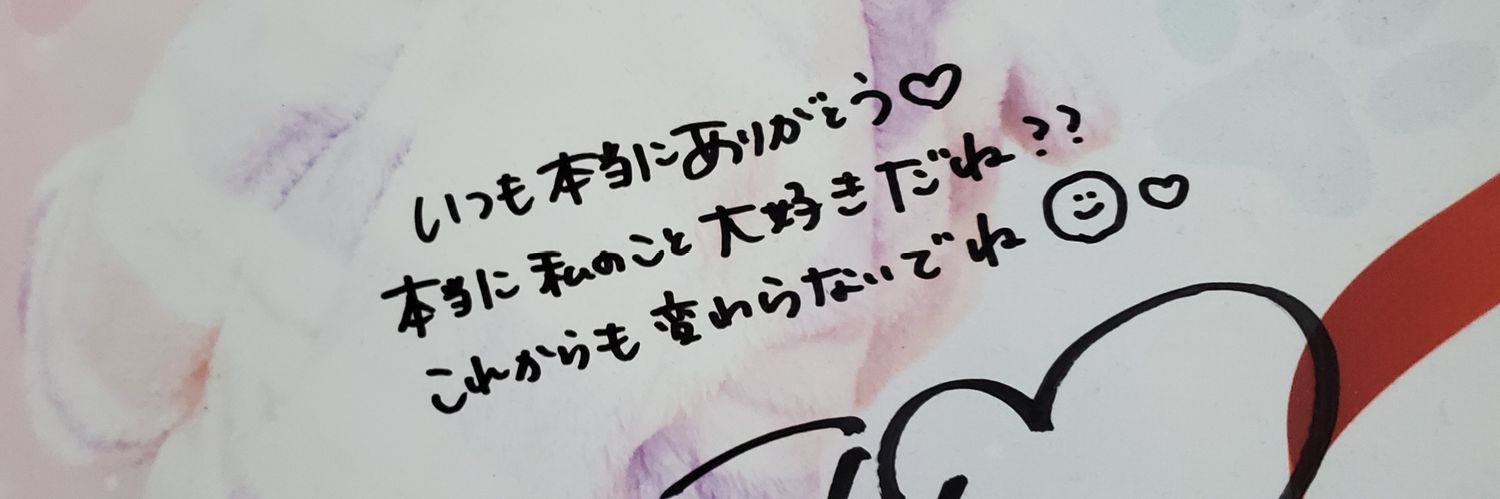 いつも本当にありがとう♡
本当に私のこと大好きだね??
これからも変わらないでね☺♡